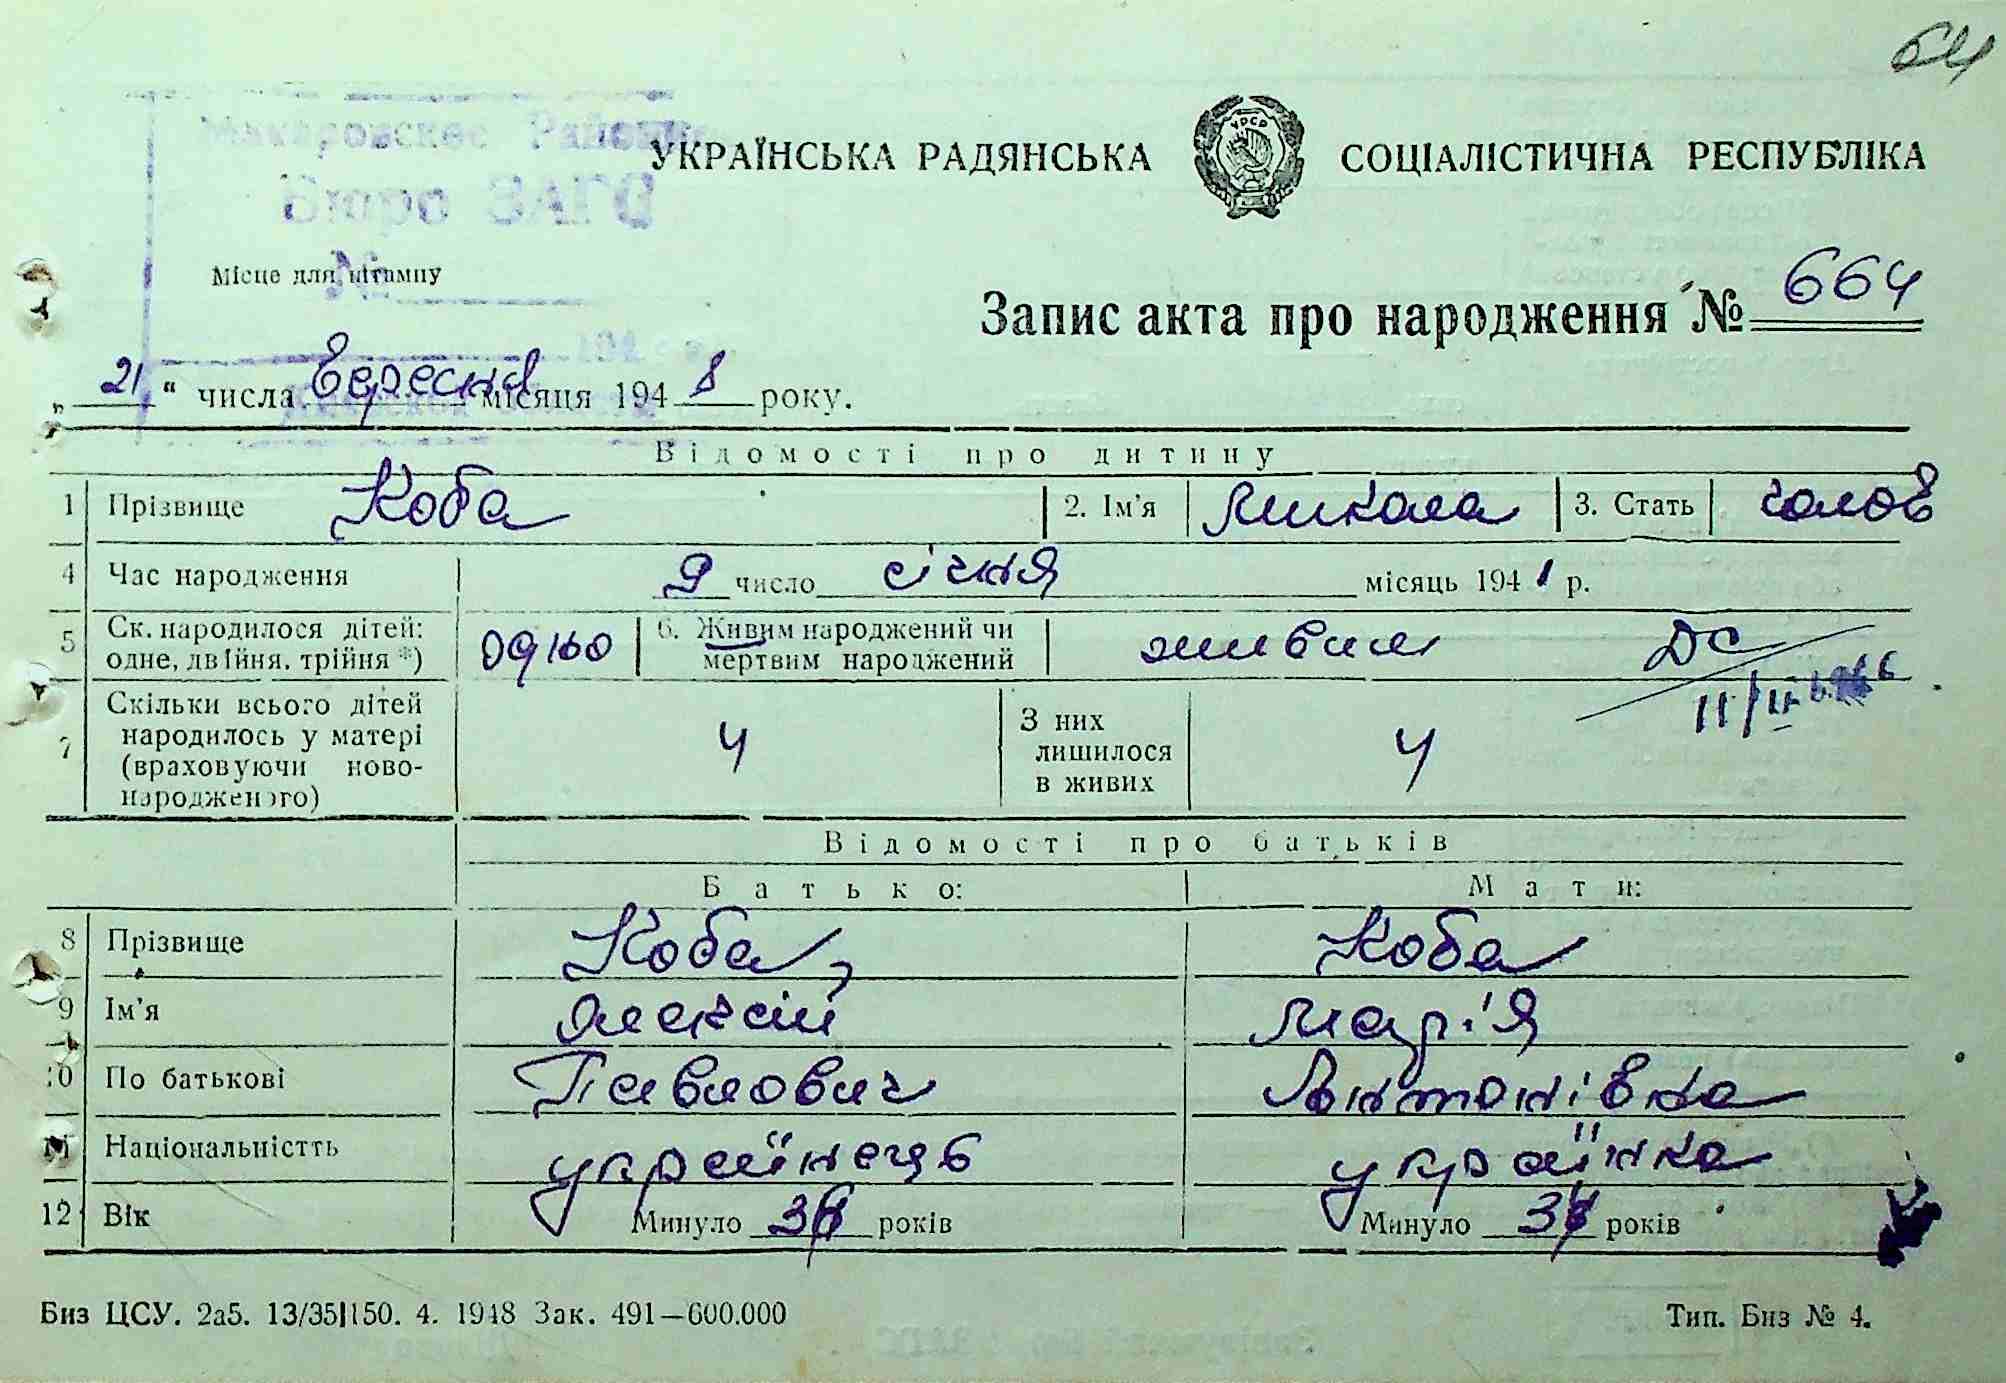 64
Макаровское Районное
УКРАЇНСЬКА РАДЯНСЬКА СОЦІАЛІСТИЧНА РЕСПУБЛІКА
УРСР
Бюро ЗАГС
№
Місце для штампу
Запис акта про народження № 664
„ 21 “ числа Вересня місяця 194 8 року.
Відомості про дитину
1 Прізвище Коба 2. Ім'я Микола 3. Стать чолов
4 Час народження 9 число січня місяць 194 1 р.
5 Ск. народилося дітей: одне, двійня, трійня *) одно 6. Живим народжений чи мертвим народжений живим
ДС
7 Скільки всього дітей народилось у матері (враховуючи новонародженого) 4 З них лишилося в живих 4
Відомості про батьків
Батько: Мати:
8 Прізвище Коба Коба
9 Ім'я Олексій Марія
10 По батькові Павлович Антонівна
11 Національністть українець українка
12 Вік Минуло років Минуло років
Биз ЦСУ. 2а5. 13/35|150. 4. 1948 Зак. 491—600.000 Тип. Биз № 4.